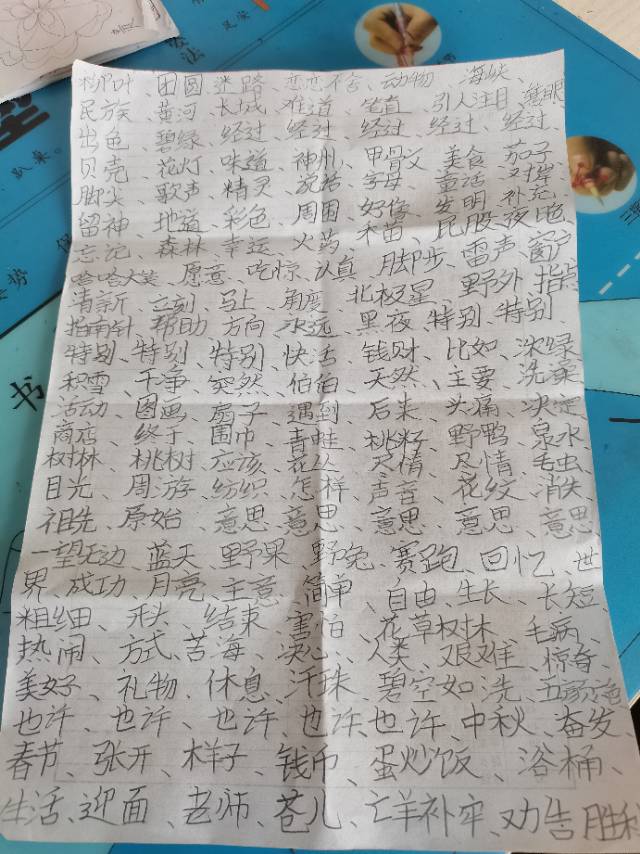 柳叶、团圆、迷路、恋恋不舍、动物、海峡、
民族、黄河、长城、难道、笔直、引人注目、
出色、碧绿、经过、经过、经过、经过、经过、
贝壳、花灯、味道、神州、甲骨文、美食、茄子、
脚尖、歌声、精灵、字母、童话、
留神、地道、彩色、周围、好像、发明、补充、
忘记、森林、幸运、火药、禾苗、
哈哈大笑、愿意、吃惊、认真、脚步、雷声、窗户、
清新、立刻、马上、角度、北极星、野外、指点、
指南针、帮助、方向、永远、黑夜、特别、特别、
特别、特别、特别、快活、钱财、比如、浓绿、
积雪、干净、突然、伯伯、天然、主要、洗澡、
活动、图画、扇子、遇到、后来、头痛、决定、
商店、终于、围巾、青蛙、桃籽、野鸭、泉水、
树林、桃树、应该、花丛、尽情、尽情、毛虫、
目光、周游、纺织、怎样、声音、花纹、消失、
祖先、原始、意思、意思、意思、意思、意思、
一望无边、蓝天、野果、野兔、赛跑、回忆、世
界、成功、月亮、主意、简单、自由、生长、长短、
粗细、禾头、结束、害怕、花草树木、毛病、
热闹、方式、苦海、决心、人类、艰难、惊奇、
美好、礼物、休息、汗珠、碧空如洗、五颜六色
也许、也许、也许、也许、也许、中秋、奋发、
春节、张开、样子、钱币、蛋炒饭、浴桶、
生活、迎面、老师、苍儿、亡羊补牢、劝告、胜利
书